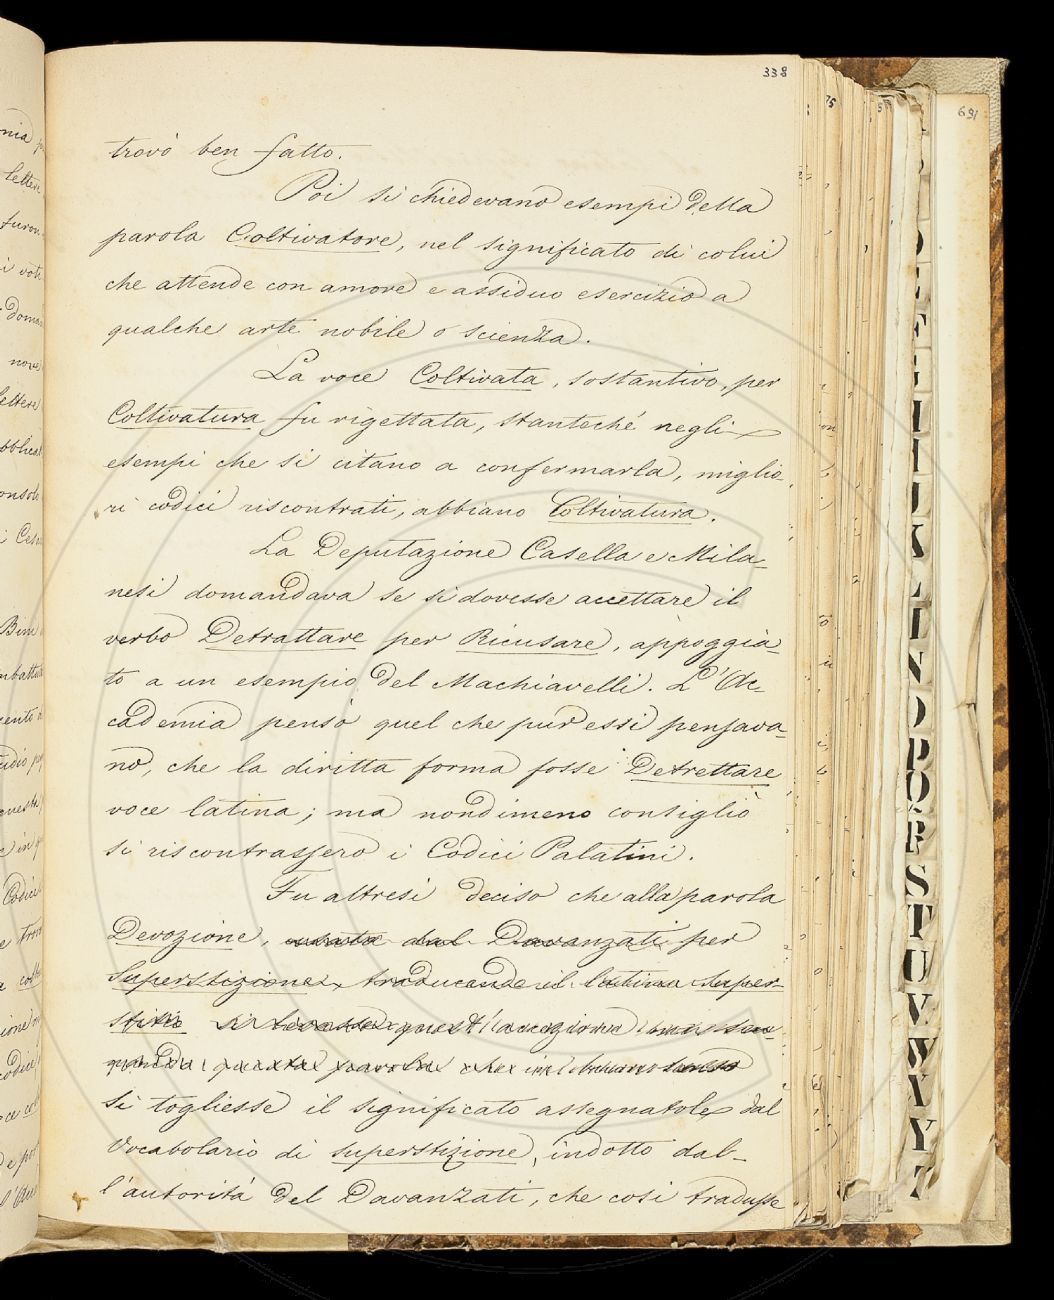 338
trovò ben fatto.
Poi si chiedevano esempi della
parola Coltivatore, nel significato di colui
che attende con amore e assiduo esercizio a
qualche arte nobile o scienza.
La voce Coltivata, sostantivo, per
Coltivatura fu rigettata, stanteché negli
esempi che si citano a confermarla, miglio-
ri codici riscontrati, abbiano Coltivatura.
La Deputazione Casella e Mila-
nesi domandava se si dovesse accettare il
verbo Detrattare per Ricusare, appoggia-
to a un esempio del Machiavelli. L'Ac-
cademia pensò quel che pur essi pensava-
no, che la diritta forma fosse Detrettare
voce latina; ma nondimeno consigliò
si riscontrassero i Codici Palatini.
Fu altresì deciso che alla parola
Devozione, usata dal Davanzati per
Superstizione, traducendo il latino super-
stitio si levasse quest'accezione
questa parola che in buono senso
si togliesse il significato assegnatole dal
Vocabolario di superstizione, indotto dal-
l'autorità del Davanzati, che così tradusse
691